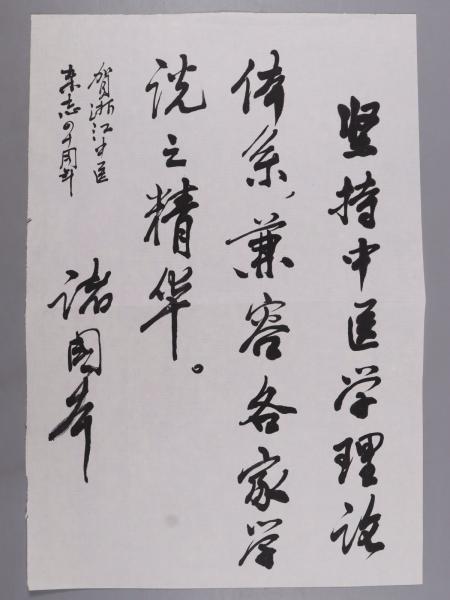 坚持中医学理论
体系,兼容各家学
说之精华。
贺浙江中医
杂志四十周年
诸国本